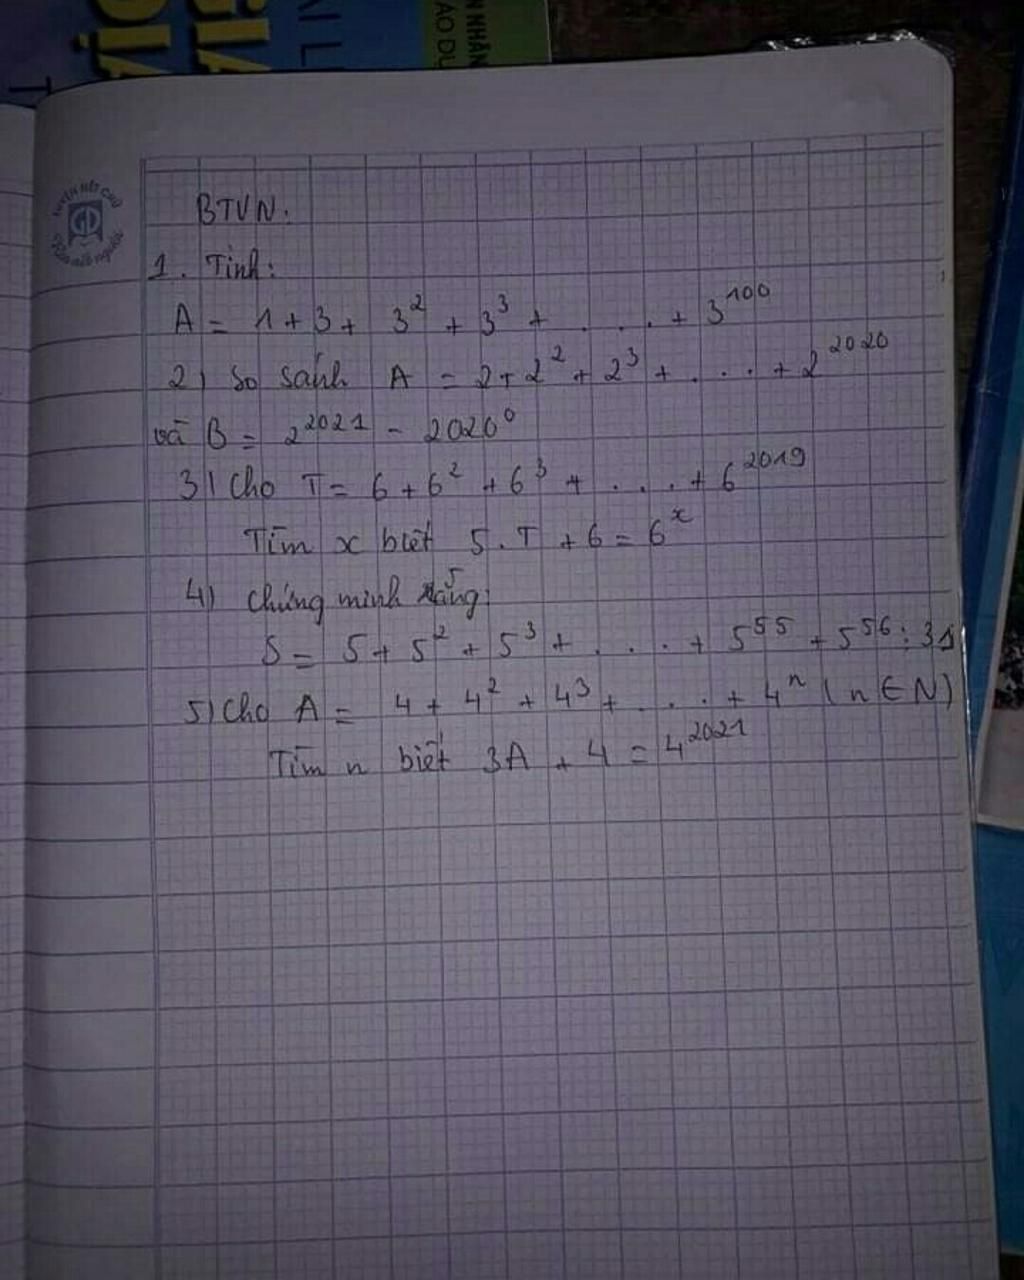 BTVN.
1. Tính:
A = 1 + 3 + 3² + 3³ + . . . . + 3¹⁰⁰
2) So sánh A = 2 + 2² + 2³ + . . . . + 2²⁰²⁰
và B = 2²⁰²¹ - 2020⁰
3) Cho T = 6 + 6² + 6³ + . . . . + 6²⁰¹⁹
Tìm x biết 5 . T + 6 = 6ˣ
4) Chứng minh rằng:
S = 5 + 5² + 5³ + . . . . + 5⁵⁵ + 5⁵⁶ ⋮ 31
5) Cho A = 4 + 4² + 4³ + . . . . + 4ⁿ (n ∈ N)
Tìm n biết 3A + 4 = 4²⁰²¹